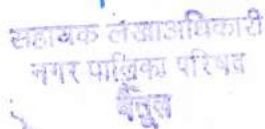 सहायक लेखाअधिकारी
नगर पालिका परिषद
बैतूल